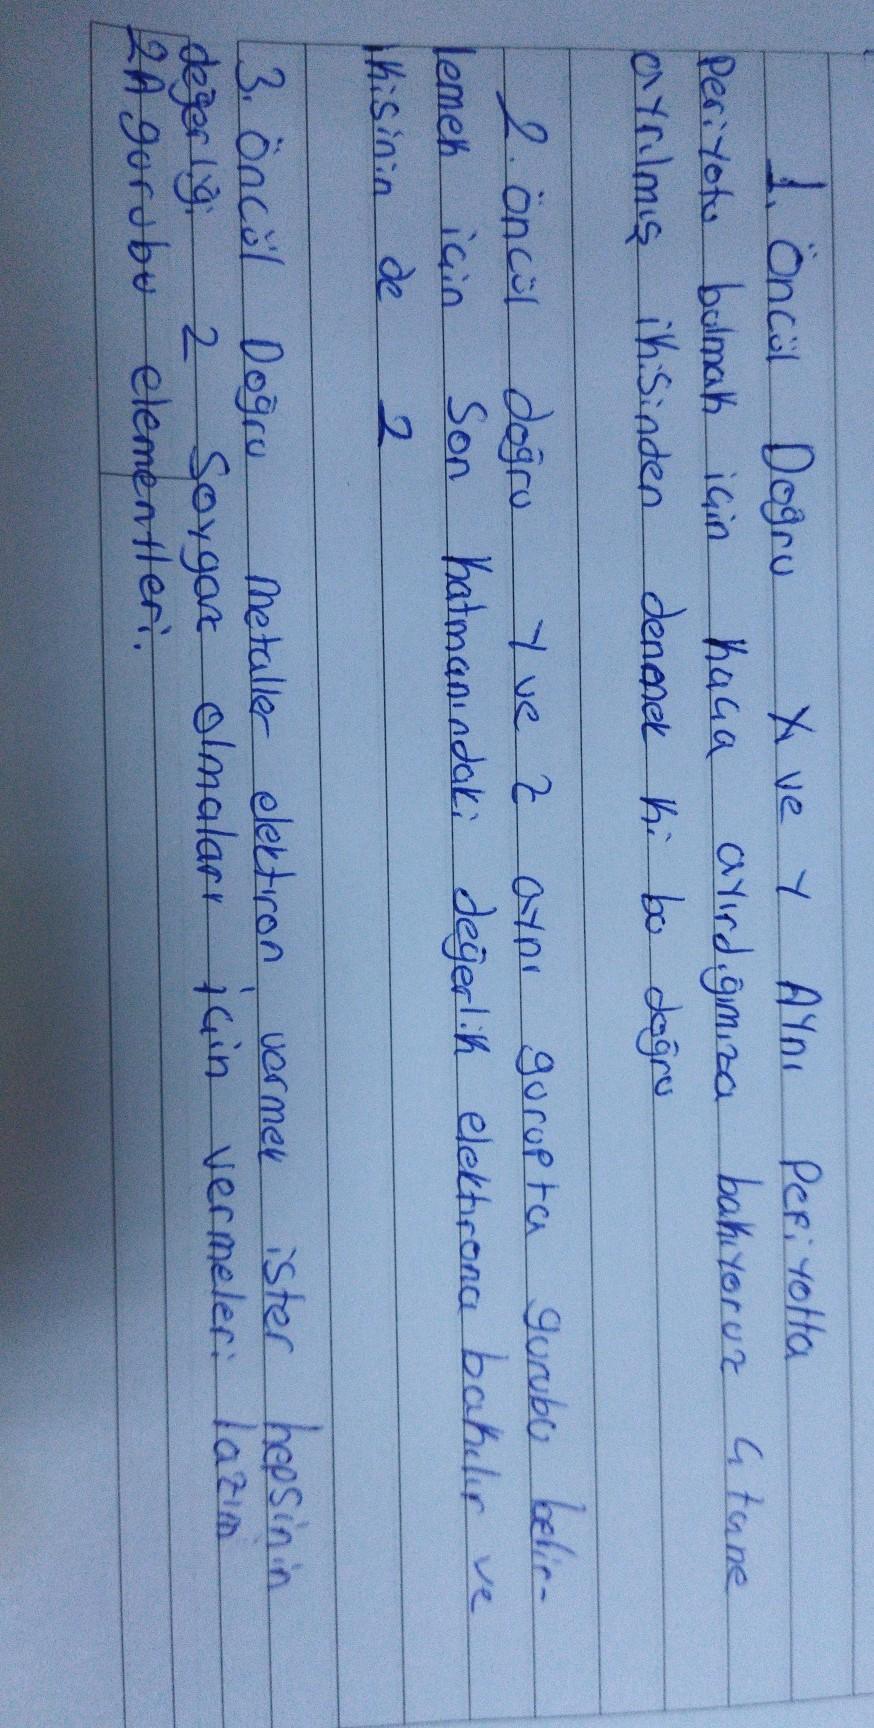 1. Öncül Doğru X ve Y Aynı Periyotta
Periyotu bulmak için kaça ayırdığımıza bakıyoruz 4 tane
ayrılmış ikisinden denemek ki bu doğru
2. öncül doğru Y ve Z aynı gurupta gurubu belir-
lemek için Son katmanındaki değerlik elektirona bakılır ve
ikisinin de 2
3. Öncül Doğru metaller elektiron vermek ister hepsinin
değerliği 2 Soygaz olmaları için vermeleri lazım
2A gurubu elementleri.